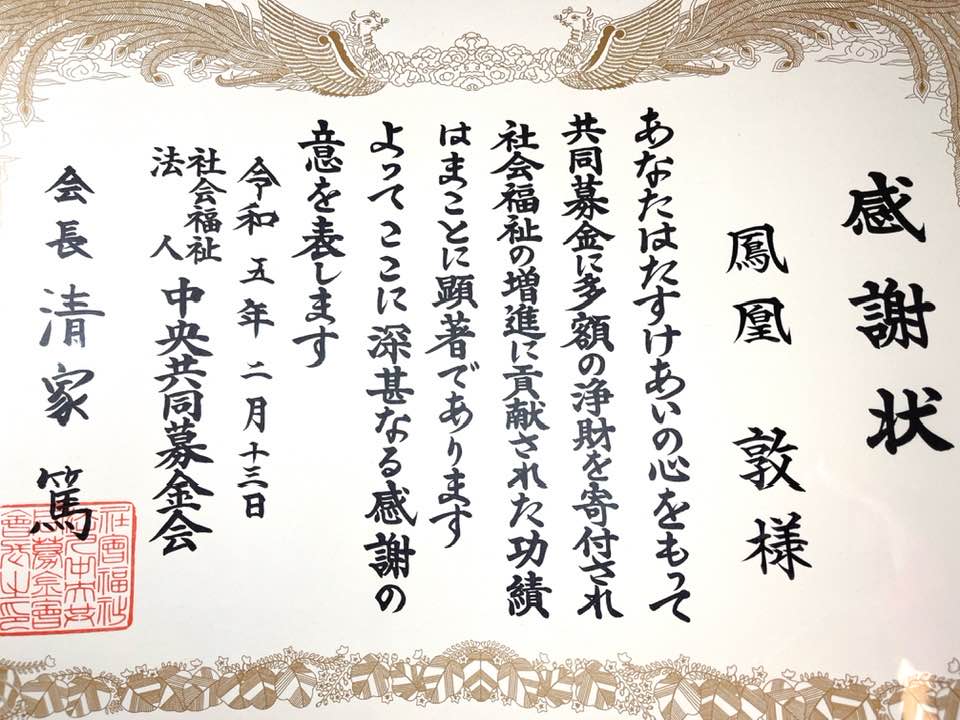 感謝状
鳳凰 敦 様
あなたはたすけあいの心をもって
共同募金に多額の浄財を寄付され
社会福祉の増進に貢献された功績
はまことに顕著であります
よってここに深甚なる感謝の
意を表します
令和五年二月十三日
社会福祉法人 中央共同募金会
会長 清家 篤